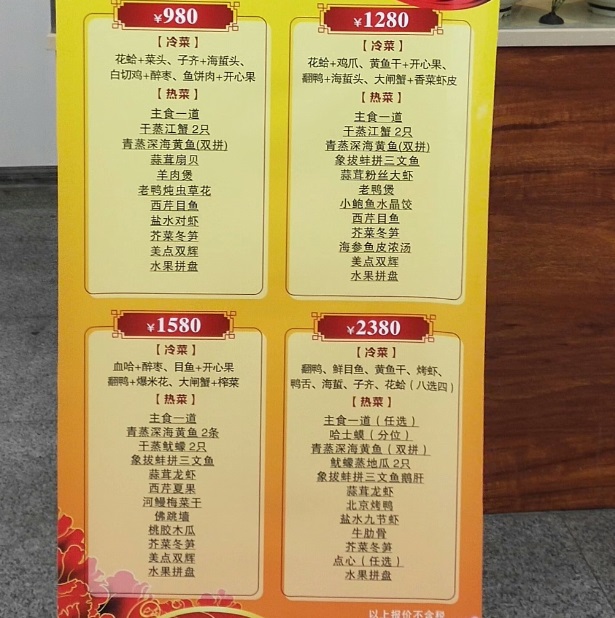 ¥980
【冷菜】
花蛤+菜头、子齐+海蜇头、
白切鸡+醉枣、鱼饼肉+开心果
【热菜】
主食一道
干蒸江蟹 2只
青蒸深海黄鱼(双拼)
蒜茸扇贝
羊肉煲
老鸭炖虫草花
西芹目鱼
盐水对虾
芥菜冬笋
美点双辉
水果拼盘
¥1280
【冷菜】
花蛤+鸡爪、黄鱼干+开心果、
翻鸭+海蜇头、大闸蟹+香菜虾皮
【热菜】
主食一道
干蒸江蟹 2只
青蒸深海黄鱼(双拼)
象拔蚌拼三文鱼
蒜茸粉丝大虾
老鸭煲
小鲍鱼水晶饺
西芹目鱼
芥菜冬笋
海参鱼皮浓汤
美点双辉
水果拼盘
¥1580
【冷菜】
血哈+醉枣、目鱼+开心果
翻鸭+爆米花、大闸蟹+榨菜
【热菜】
主食一道
青蒸深海黄鱼 2条
干蒸鱿蠓 2只
象拔蚌拼三文鱼
蒜茸龙虾
西芹夏果
河鳗梅菜干
佛跳墙
桃胶木瓜
芥菜冬笋
美点双辉
水果拼盘
¥2380
【冷菜】
翻鸭、鲜目鱼、黄鱼干、烤虾、
鸭舌、海蜇、子齐、花蛤（八选四）
【热菜】
主食一道（任选）
哈士蟆（分位）
青蒸深海黄鱼（双拼）
鱿蠓蒸地瓜 2只
象拔蚌拼三文鱼鹅肝
蒜茸龙虾
北京烤鸭
盐水九节虾
牛肋骨
芥菜冬笋
点心（任选）
水果拼盘
以上报价不含税